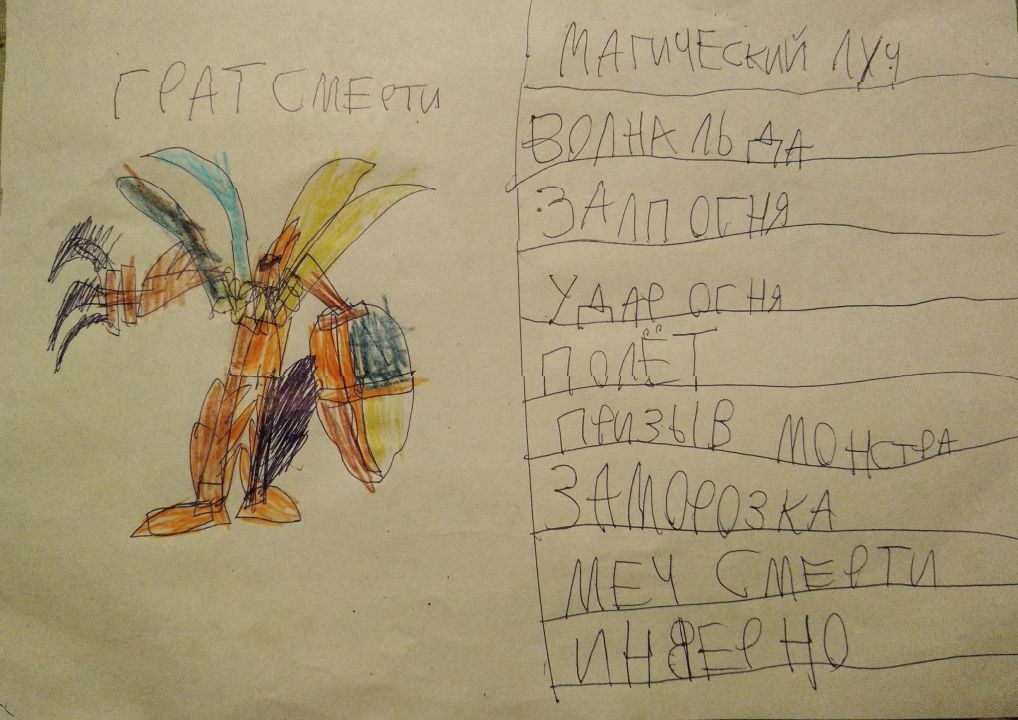 ГРАТ СМЕРТИ
МАГИЧЕСКИЙ ЛУЧ
ВОЛНА ЛЬДА
ЗАЛП ОГНЯ
УДАР ОГНЯ
ПОЛЁТ
ПРИЗЫВ МОНСТРА
ЗАМОРОЗКА
МЕЧ СМЕРТИ
ИНФЕРНО